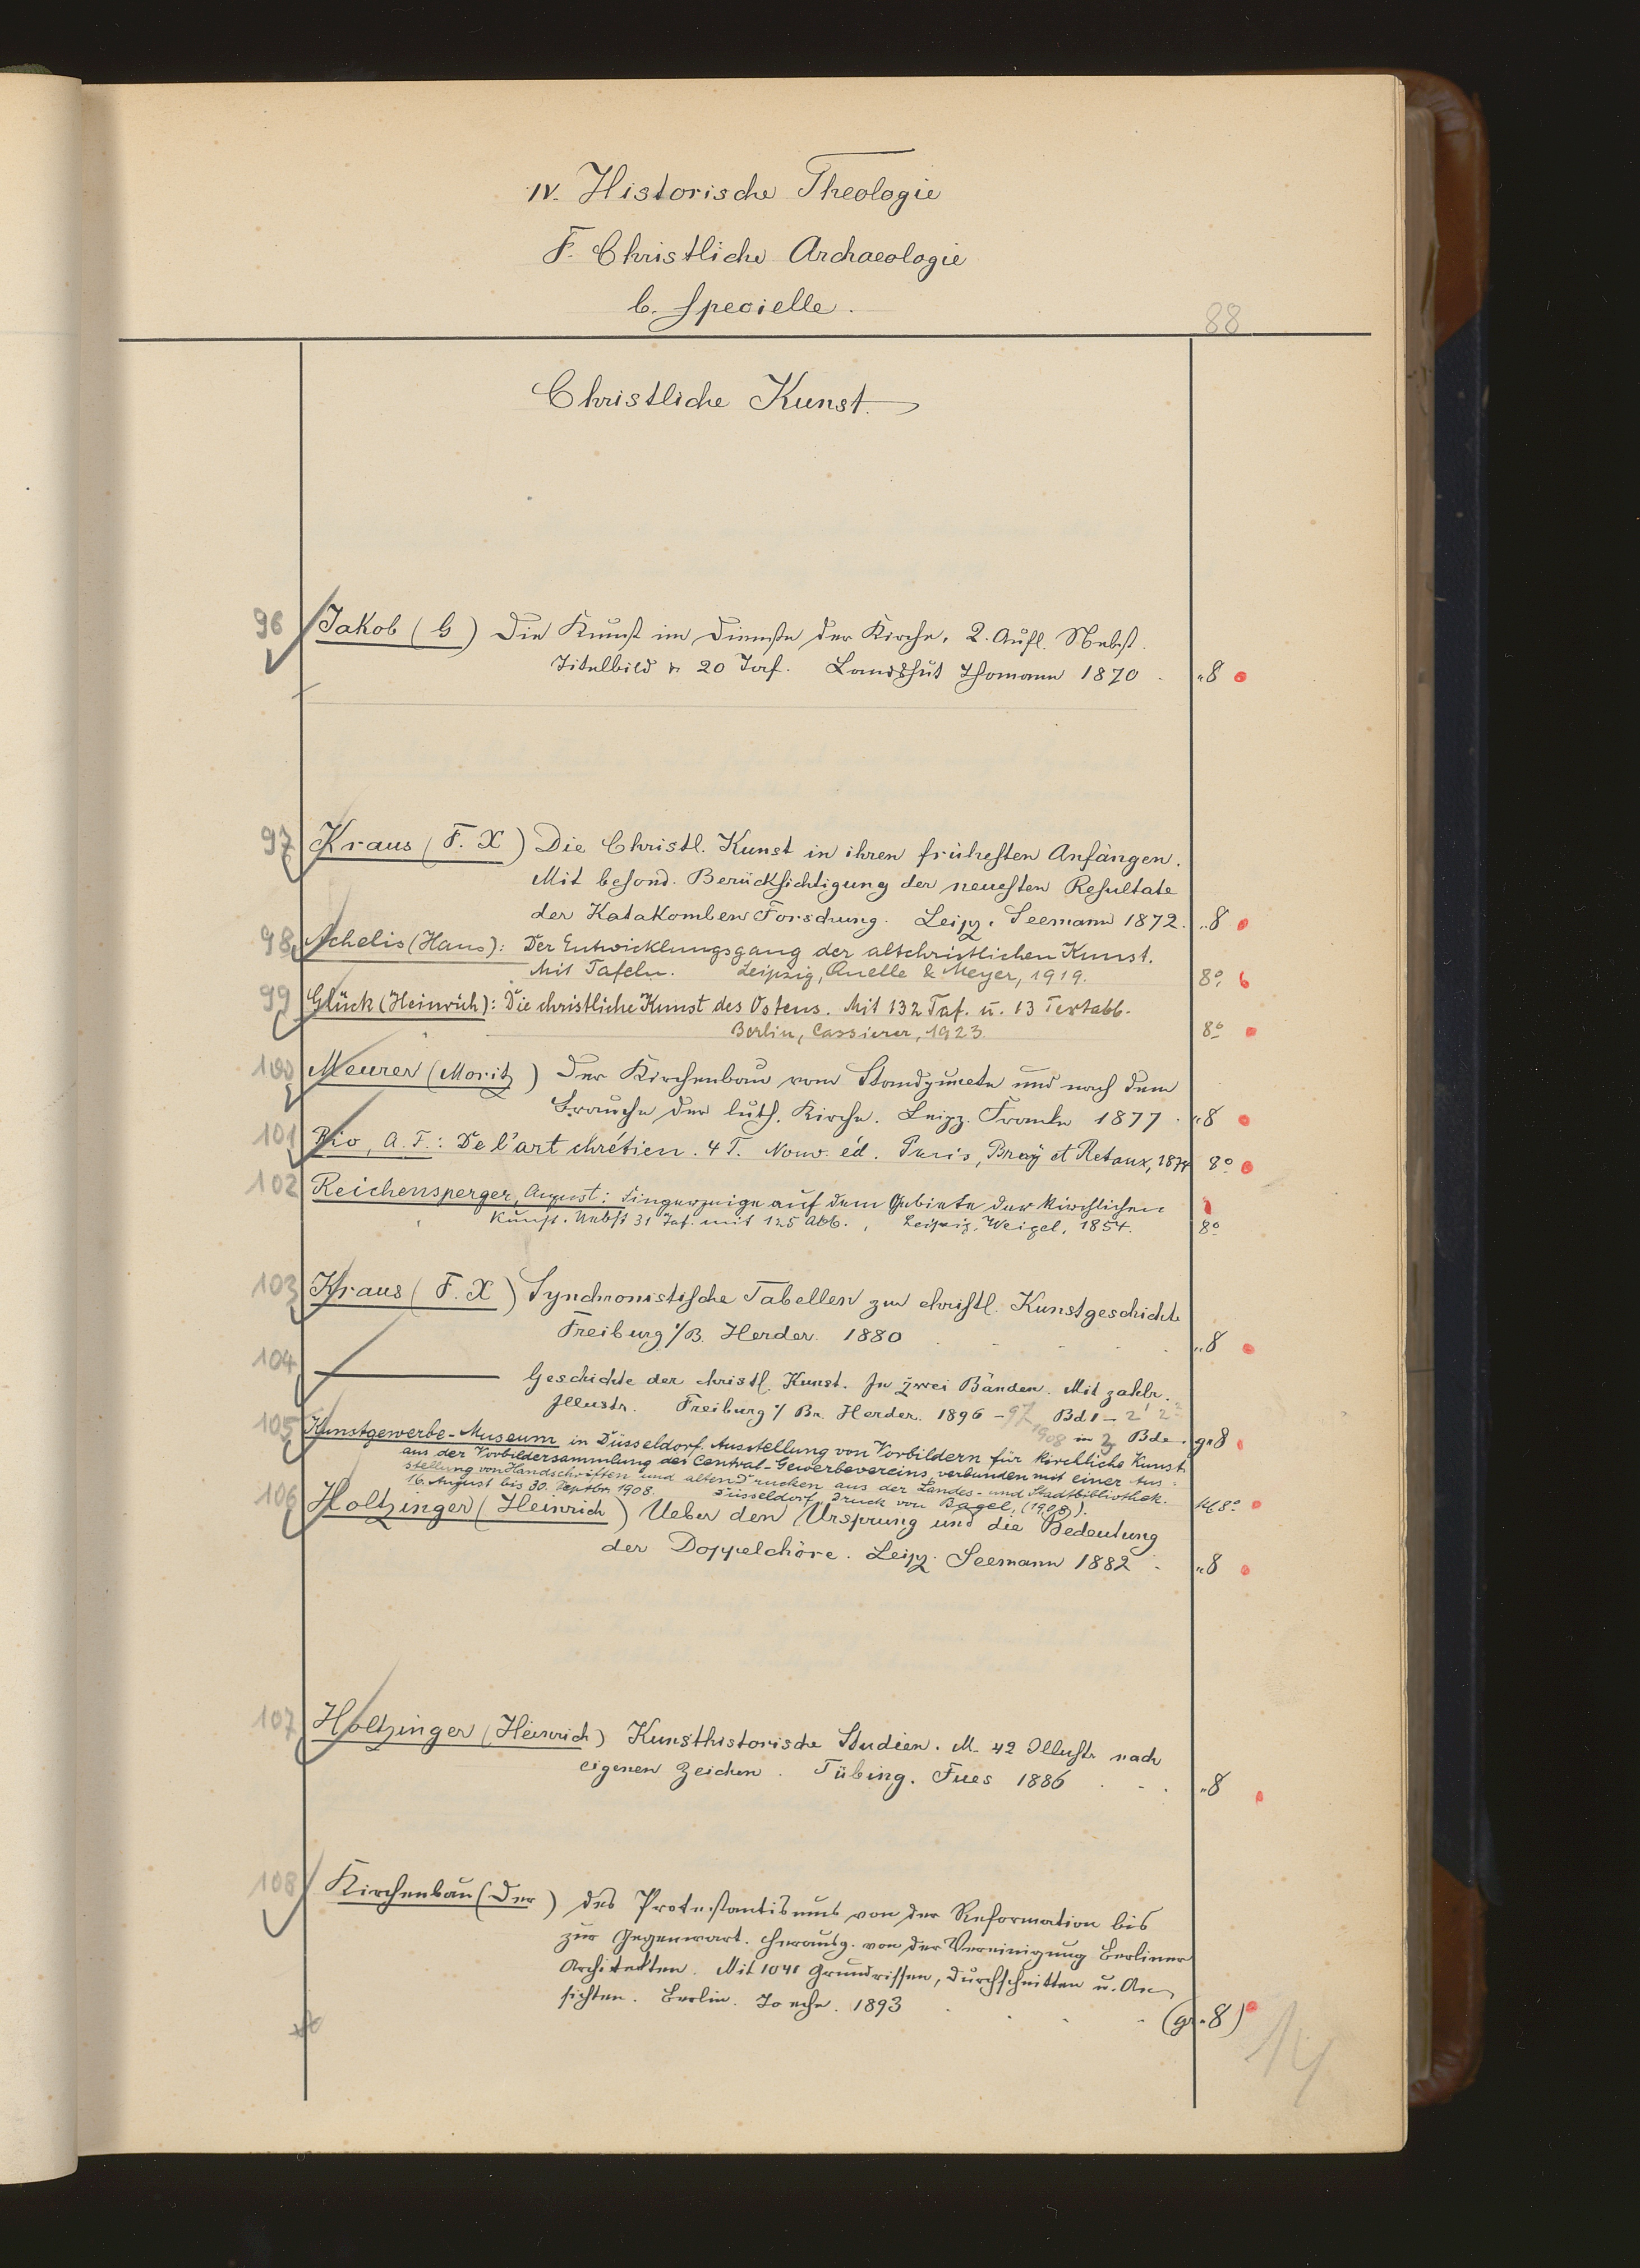 IV. Historische Theologie
F. Christliche Archaeologie
b. Specielle.
88
Christliche Kunst.
96 Jakob (G) Die Kunst im Dienste der Kirche. 2. Aufl. Nebst
Titelbild u. 20 Taf. Landshut Thomann 1870 . „8
97 Kraus (F. X) Die Christl. Kunst in ihren frühesten Anfängen.
Mit besond. Berücksichtigung der neuesten Resultate
der Katakomben Forschung. Leipz. Seemann 1872. „8
98 Achelis (Hans): Der Entwicklungsgang der altchristlichen Kunst.
Mit Tafeln. Leipzig, Quelle & Meyer, 1919. 8°
99 Glück (Heinrich): Die christliche Kunst des Ostens. Mit 132 Taf. u. 13 Textabb.
Berlin, Cassierer, 1923. 8°
100 Meurer (Moritz) Der Kirchenbau vom Standpuncte und nach dem
Brauche der luth. Kirche. Leipz. 1877 . „8
101 Rio, A. F.: De l'art chrétien. 4 T. Nouv. éd. Paris, Bray et Retaux, 1874 8°
102 Reichensperger, August: Fingerzeige auf dem Gebiete der kirchlichen
Kunst. Nebst 31 Taf. mit 125 Abb. Leipzig, Weigel, 1854. 8°
103 Kraus (F. X) Synchronistische Tabellen zur christl. Kunstgeschichte
Freiburg i/B. Herder. 1880 „8
104 —— Geschichte der christl. Kunst. In zwei Bänden. Mit zahlr.
Illustr. Freiburg i/Br. Herder. 1896 -97 1908 Bd 1 – 2¹ 2² in 3 Bde. gr8
105 Kunstgewerbe-Museum in Düsseldorf. Ausstellung von Vorbildern für kirchliche Kunst
aus der Vorbildersammlung des Central-Gewerbevereins, verbunden mit einer Aus-
stellung von Handschriften und alten Drucken aus der Landes- und Stadtbibliothek.
16. August bis 30. Septbr. 1908. Düsseldorf, Druck von Bagel, (1908). kl 8°
106 Holtzinger (Heinrich) Ueber den Ursprung und die Bedeutung
der Doppelchöre. Leipz. Seemann 1882 . „8
107 Holtzinger (Heinrich) Kunsthistorische Studien. M. 42 Illustr. nach
eigenen Zeichen. Tübing. Fues 1886 . - . „8
108 Kirchenbau (Der) des Protestantismus von der Reformation bis
zur Gegenwart. Herausg. von der Vereinigung Berliner
Architekten. Mit 1041 Grundrissen, Durchschnitten u. An-
sichten. Berlin. Toeche. 1893 (gr.8)
14